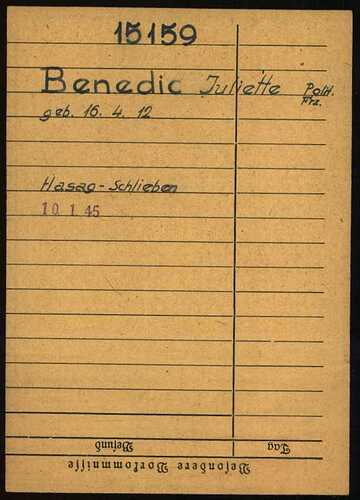 15159
Benedic Juliette Polit.
Frz.
geb. 16. 4. 12
Hasag-Schlieben
10. 1. 45
Tag Befund
Besondere Vorkommnisse